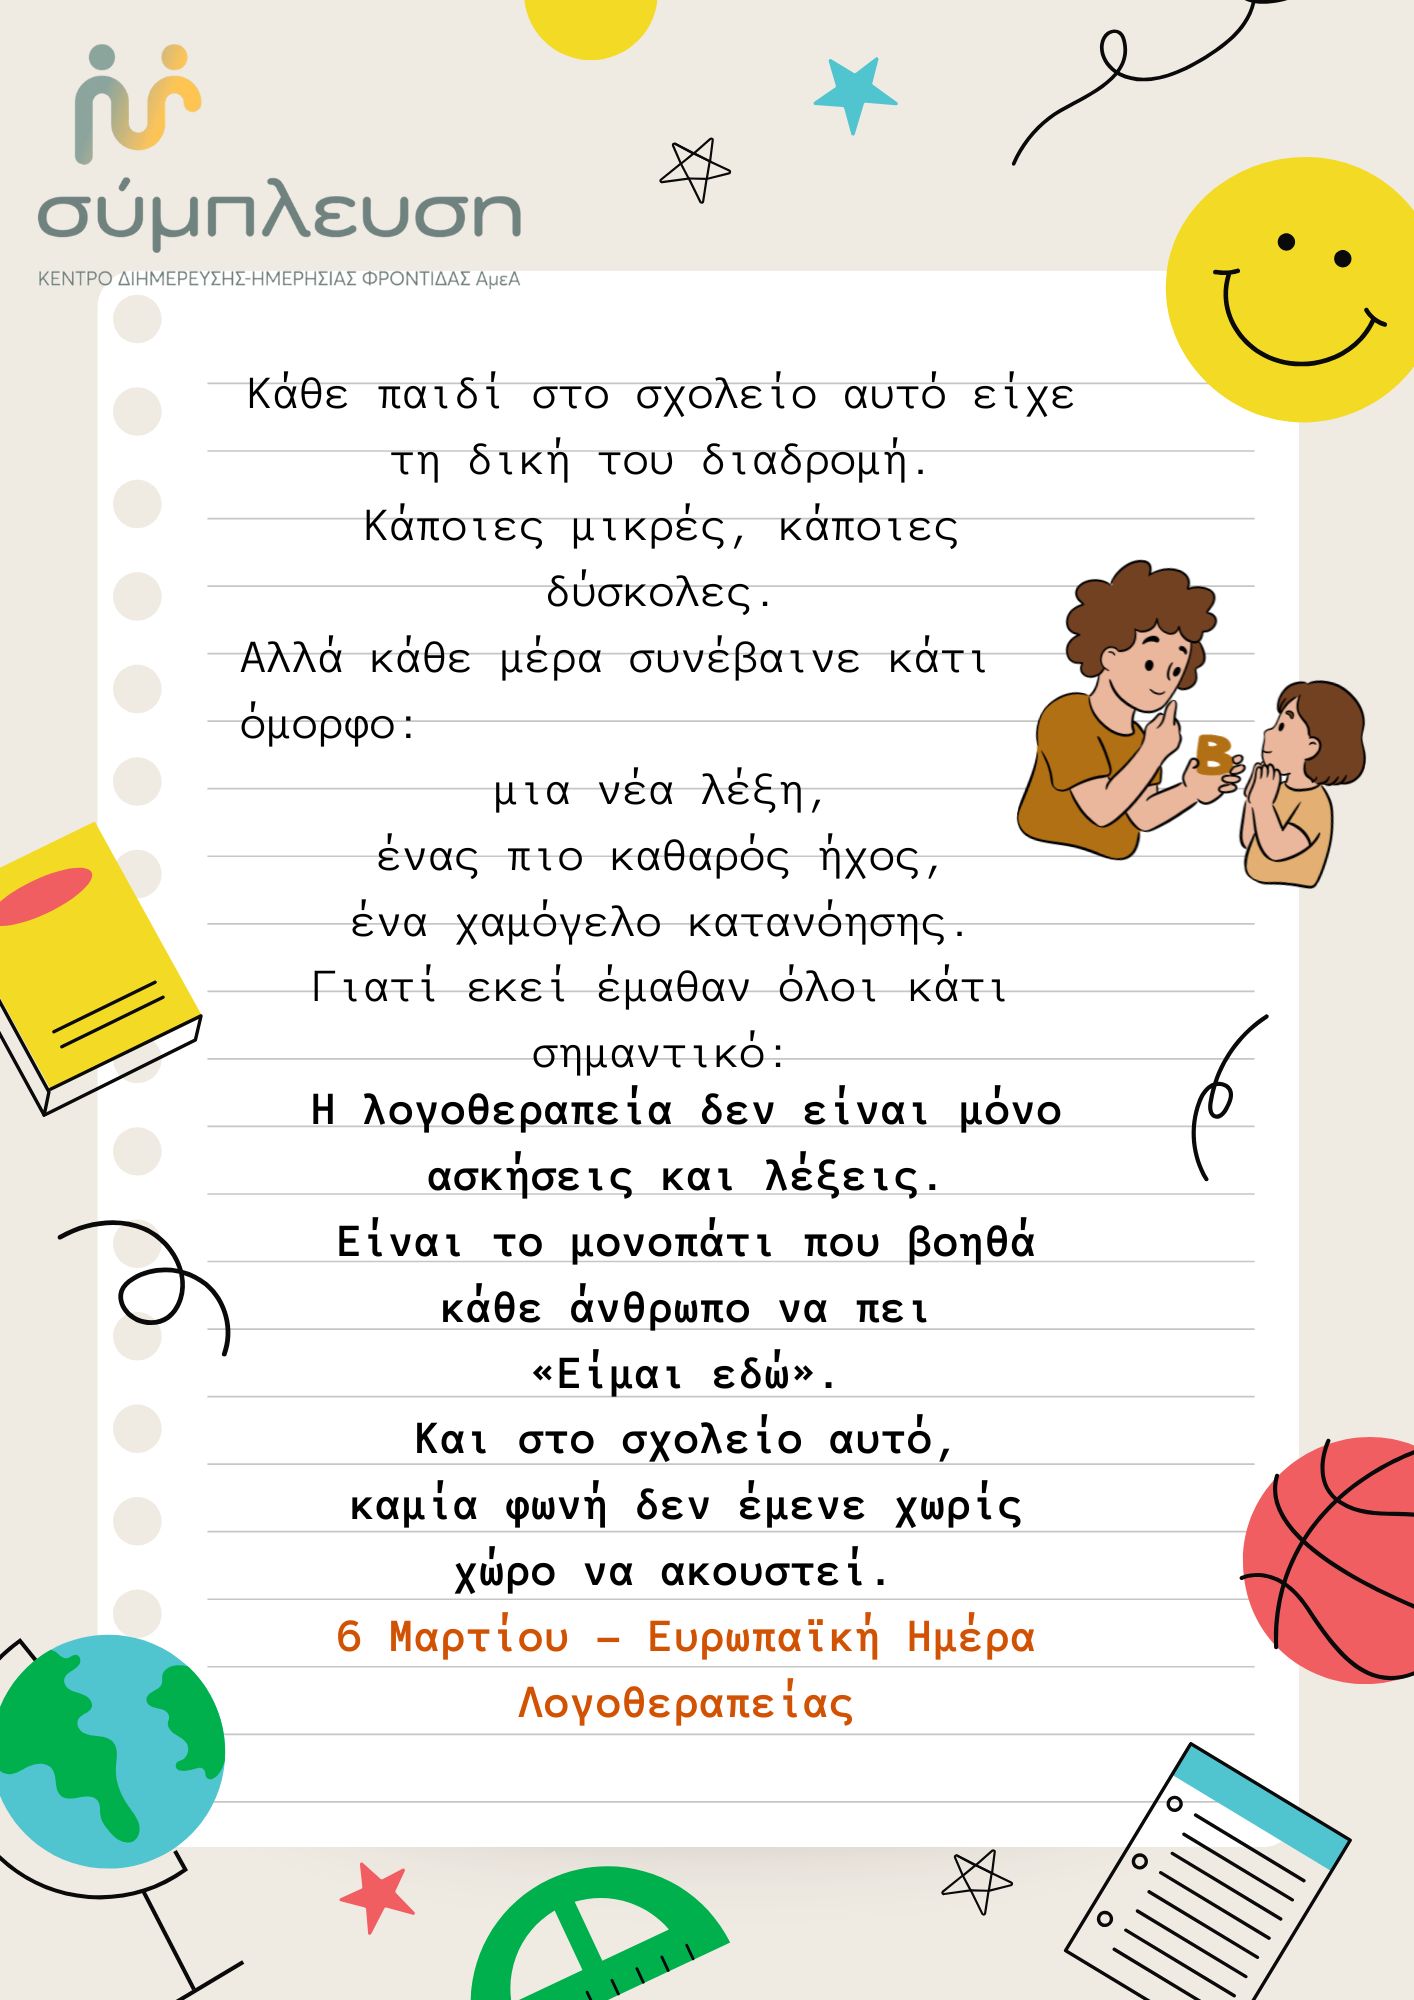 σύμπλευση
ΚΕΝΤΡΟ ΔΙΗΜΕΡΕΥΣΗΣ-ΗΜΕΡΗΣΙΑΣ ΦΡΟΝΤΙΔΑΣ ΑμεΑ
Κάθε παιδί στο σχολείο αυτό είχε
τη δική του διαδρομή.
Κάποιες μικρές, κάποιες
δύσκολες.
Αλλά κάθε μέρα συνέβαινε κάτι
όμορφο:
μια νέα λέξη,
ένας πιο καθαρός ήχος,
ένα χαμόγελο κατανόησης.
Γιατί εκεί έμαθαν όλοι κάτι
σημαντικό:
Η λογοθεραπεία δεν είναι μόνο
ασκήσεις και λέξεις.
Είναι το μονοπάτι που βοηθά
κάθε άνθρωπο να πει
«Είμαι εδώ».
Και στο σχολείο αυτό,
καμία φωνή δεν έμενε χωρίς
χώρο να ακουστεί.
6 Μαρτίου – Ευρωπαϊκή Ημέρα
Λογοθεραπείας
B